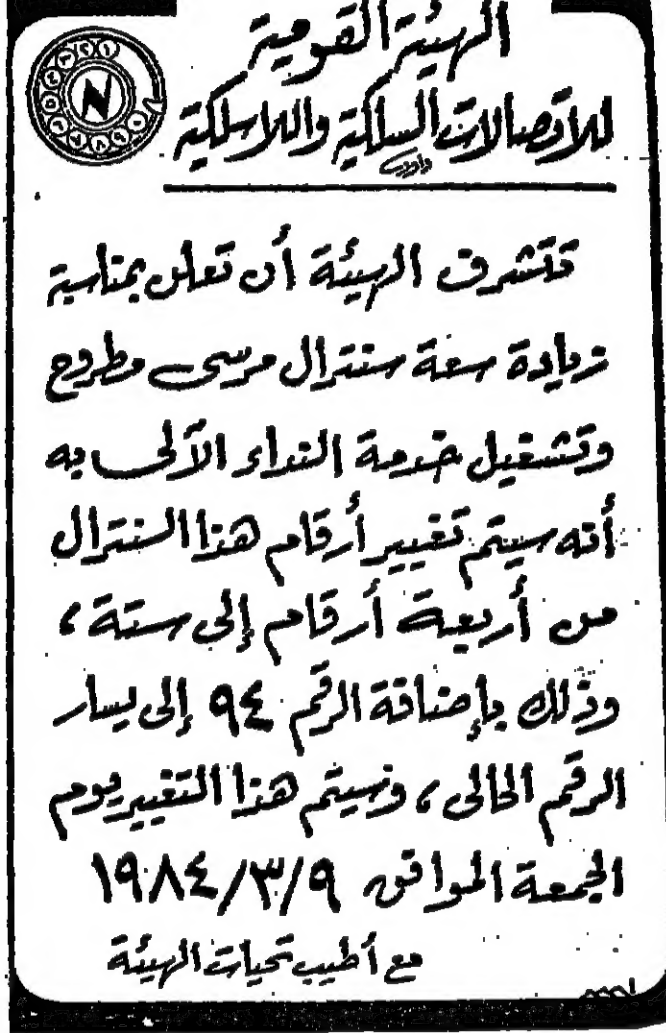 الهيئة القومية
للاتصالات السلكية واللاسلكية
تتشرف الهيئة أن تعلن بمناسبة
زيادة سعة سنترال مرسى مطروح
وتشغيل خدمة النداء الآلى به
أنه سيتم تغيير أرقام هذا السنترال
من أربعة أرقام إلى ستة ،
وذلك بإضافة الرقم ٩٤ إلى يسار
الرقم الحالى ، وسيتم هذا التغيير يوم
الجمعة الموافق ١٩٨٤/٣/٩
مع أطيب تحيات الهيئة